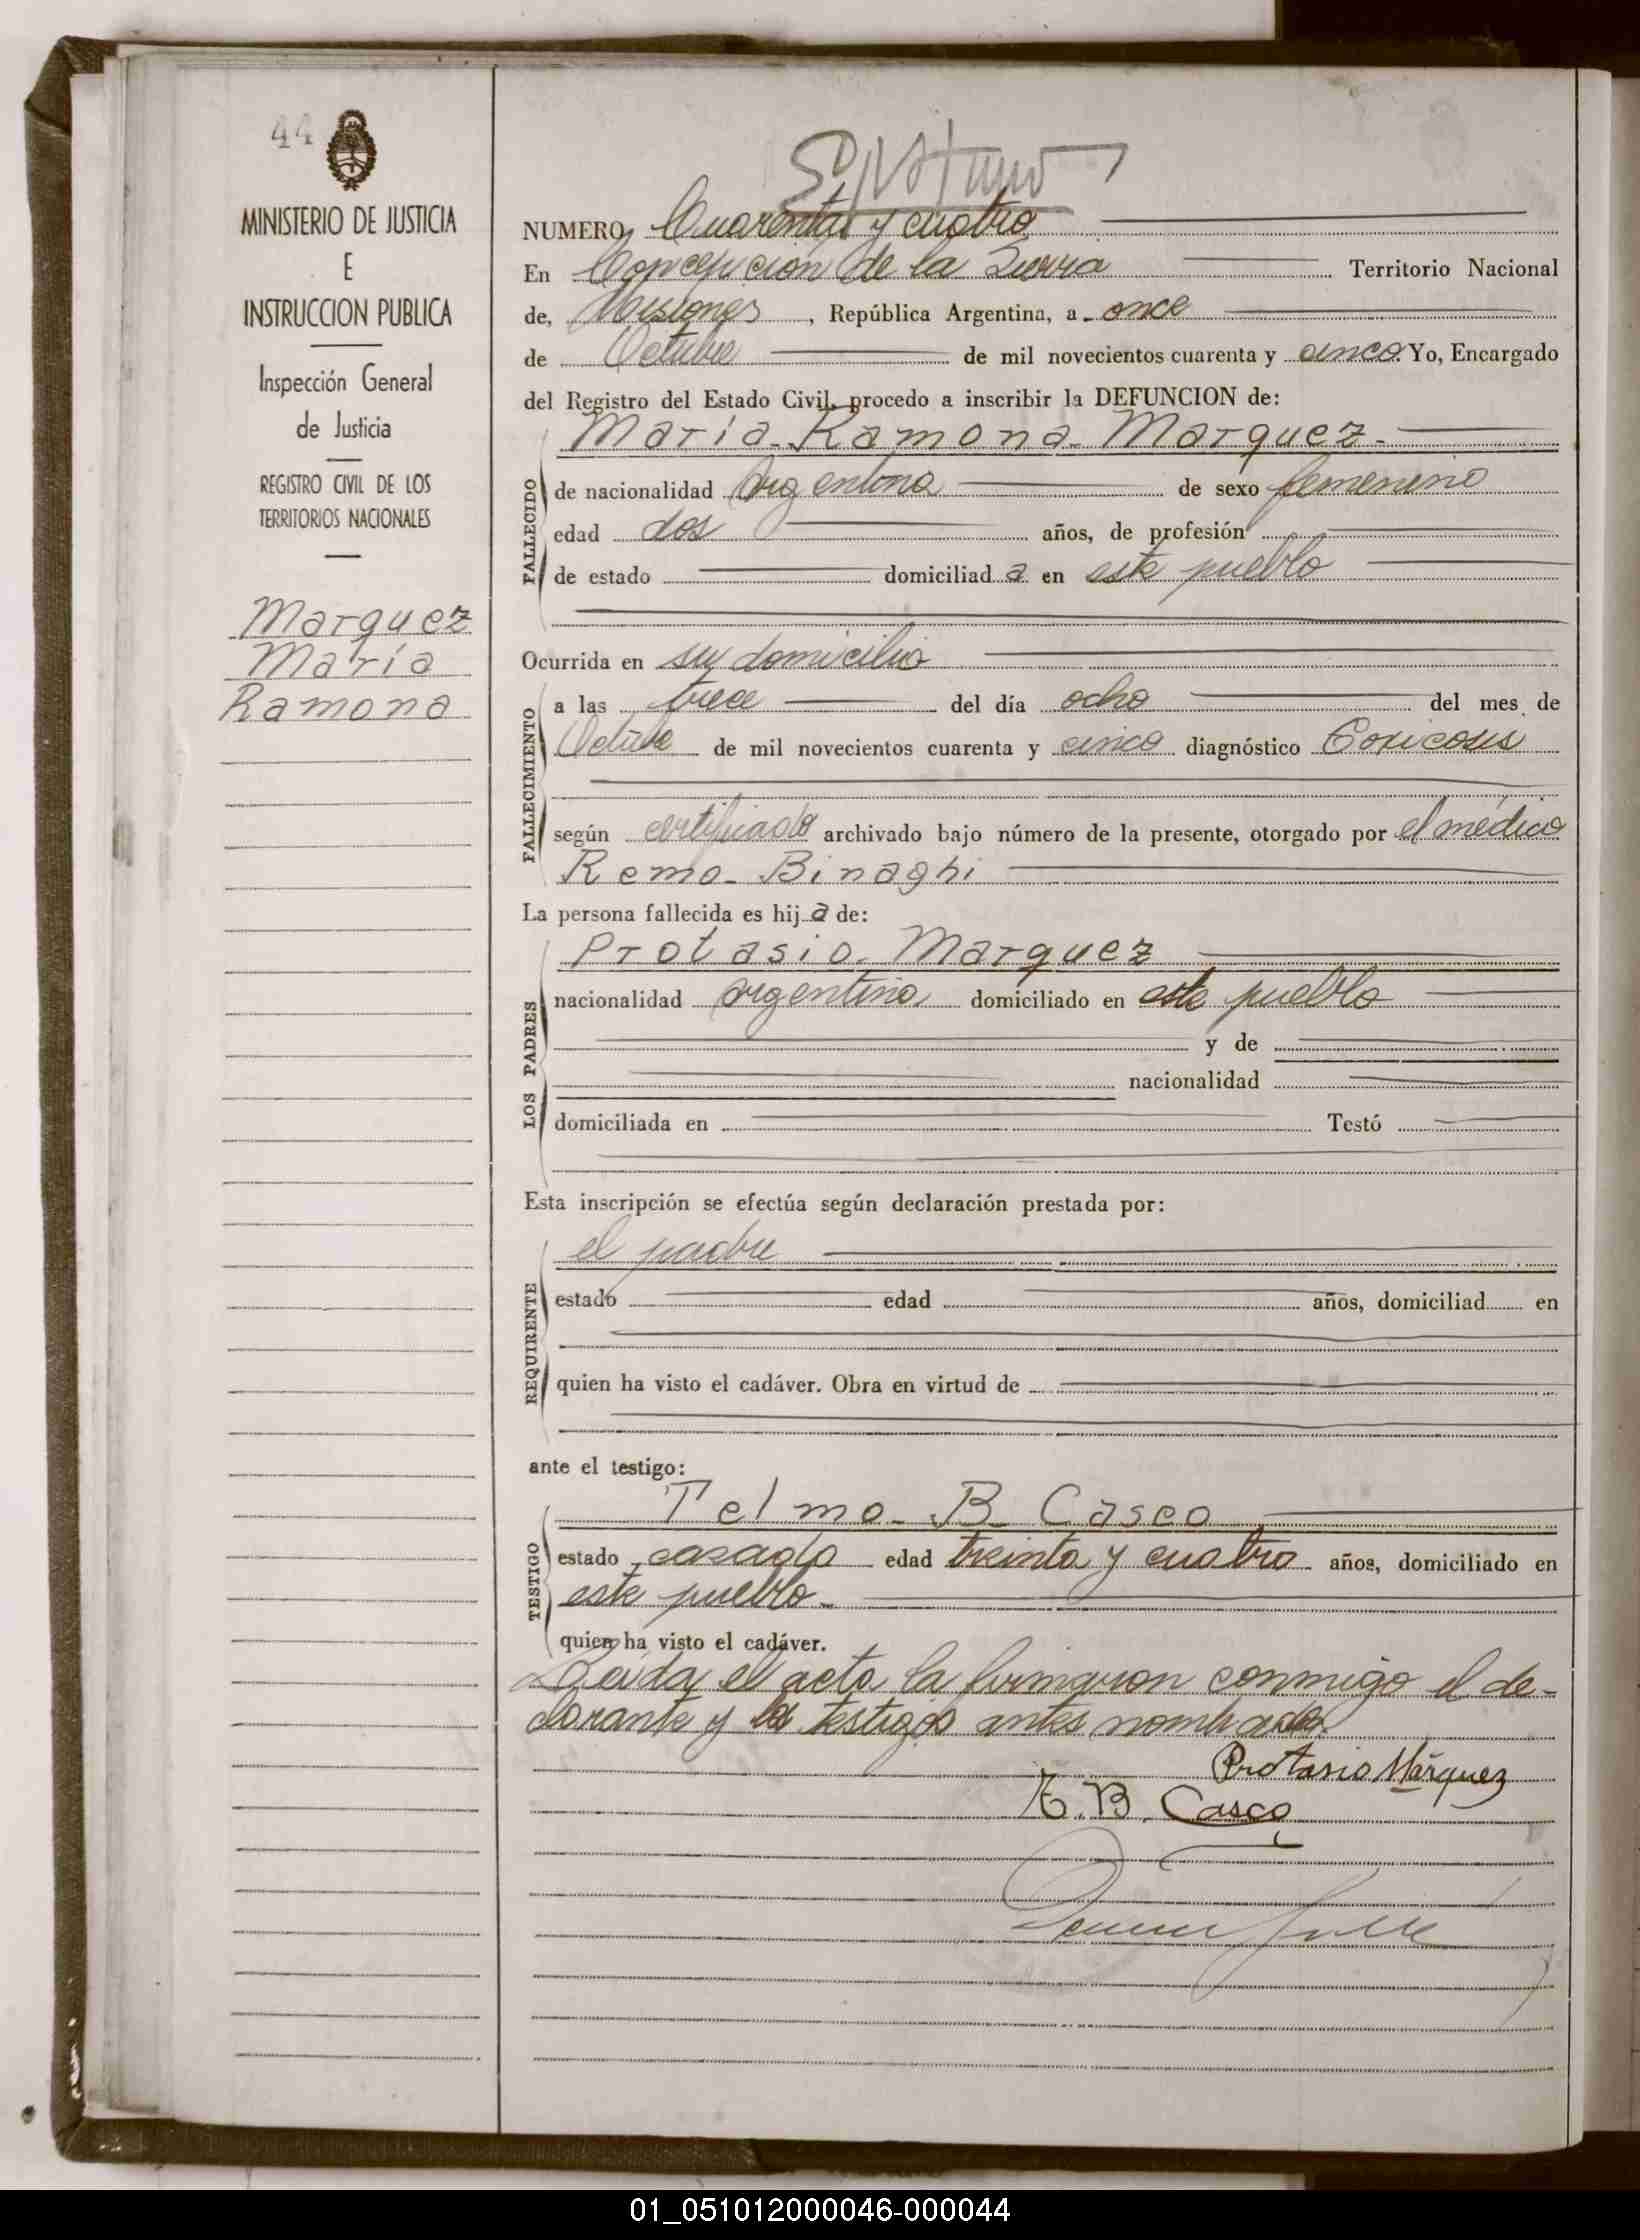 44
MINISTERIO DE JUSTICIA
E
INSTRUCCION PUBLICA
Inspección General
de Justicia
REGISTRO CIVIL DE LOS
TERRITORIOS NACIONALES
Marquez
María
Ramona
NUMERO Cuarenta y cuatro
En Concepcion de la Sierra Territorio Nacional
de, Misiones, República Argentina, a once
de Octubre de mil novecientos cuarenta y cinco Yo, Encargado
del Registro del Estado Civil, procedo a inscribir la DEFUNCION de:
María Ramona Marquez
FALLECIDO
de nacionalidad Argentina de sexo femenino
edad dos años, de profesión
de estado domiciliada en este pueblo
Ocurrida en su domicilio
FALLECIMIENTO
a las trece del día ocho del mes de
Octubre de mil novecientos cuarenta y cinco diagnóstico Toxicosis
según certificado archivado bajo número de la presente, otorgado por el médico
Remo Binaghi
La persona fallecida es hija de:
LOS PADRES
Protasio Marquez
nacionalidad argentino domiciliado en este pueblo
y de
nacionalidad
domiciliada en Testó
Esta inscripción se efectúa según declaración prestada por:
REQUIRENTE
el padre
estado edad años, domiciliad en
quien ha visto el cadáver. Obra en virtud de
ante el testigo:
TESTIGO
Telmo B Casco
estado casado edad treinta y cuatro años, domiciliado en
este pueblo
quien ha visto el cadáver.
Leida el acta la firmaron conmigo el de-
clarante y testigo antes nombrado.
Protasio Márquez
T. B. Casco
01_051012000046-000044